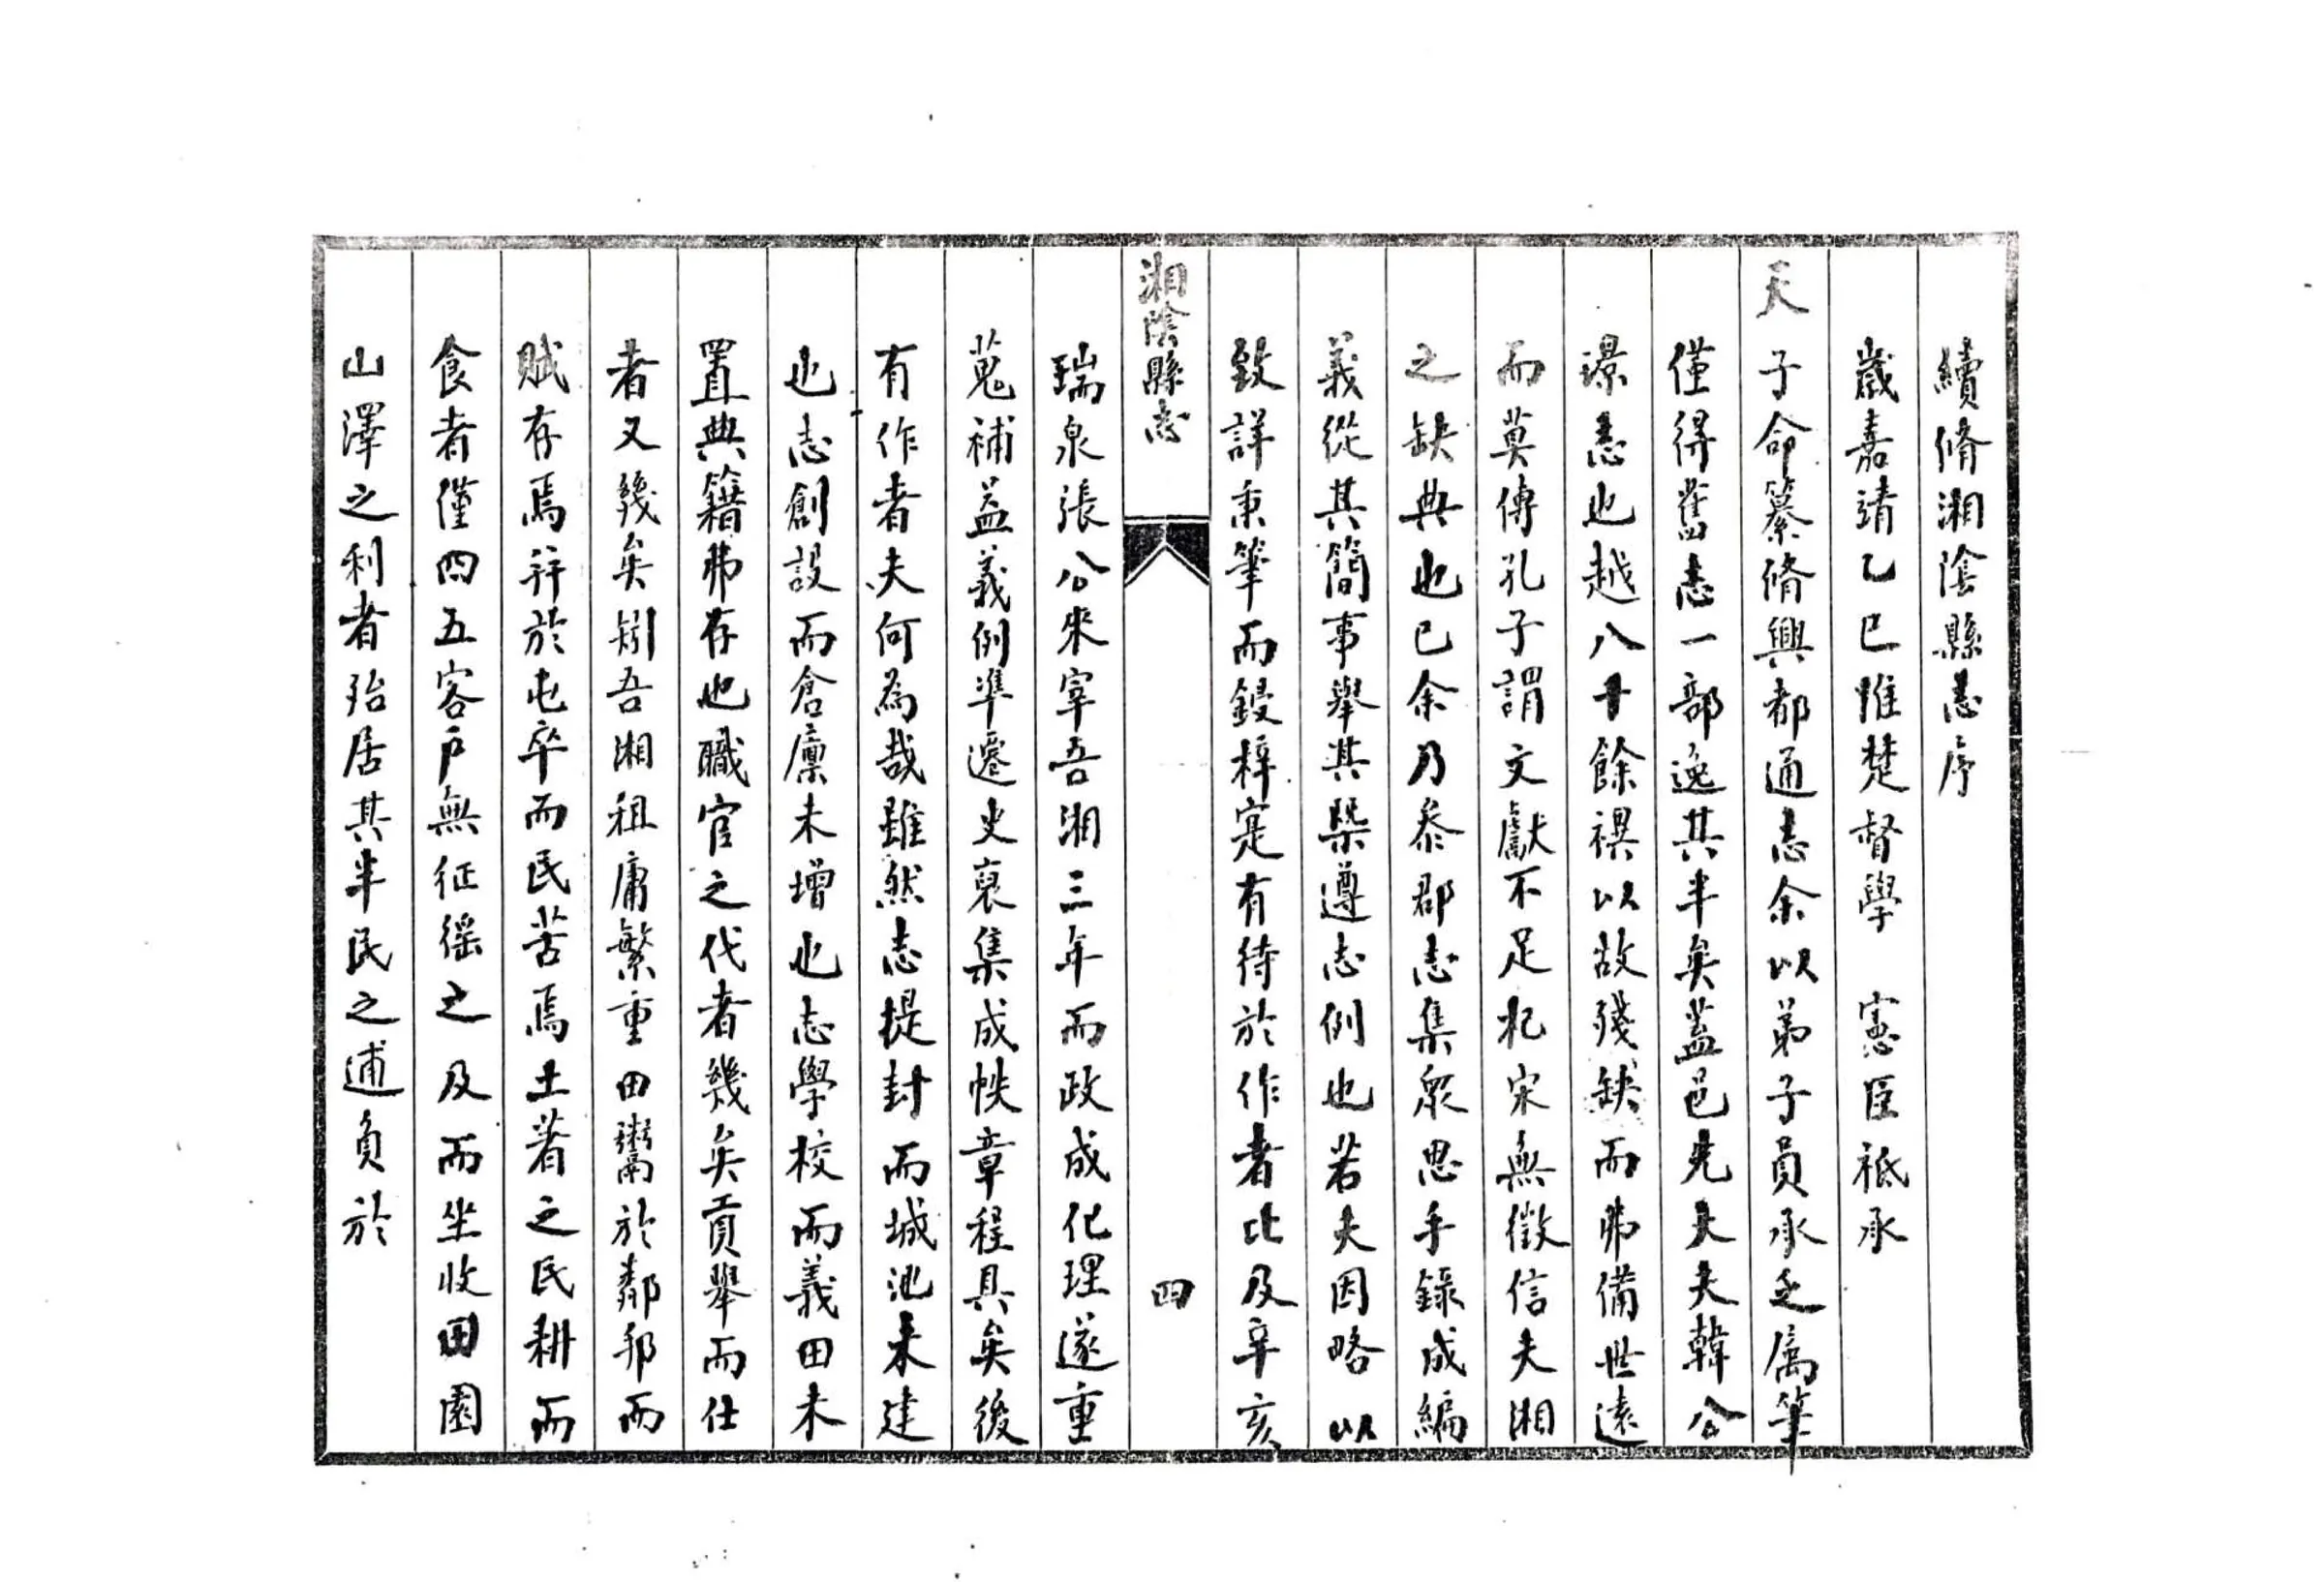 續脩湘陰縣志序
歲嘉靖乙巳惟楚督學　憲臣祗承
天子命纂脩興都通志余以弟子員承乏属筆
僅得舊志一部逸其半矣蓋邑先大夫韓公
璟志也越八十餘禩以故殘缺而弗備世遠
而莫傳孔子謂文獻不足杞宋無徵信夫湘
之缺典也已余乃叅郡志集眾思手錄成編
義從其簡事舉其槩遵志例也若夫因略以
致詳秉筆而鋟梓寔有待於作者比及辛亥
湘陰縣志
四
瑞泉張公來宰吾湘三年而政成化理遂重
蒐補益義例準遷史裒集成帙章程具矣後
有作者夫何為哉雖然志提封而城池未建
也志創設而倉廩未增也志學校而義田未
置典籍弗存也職官之代者幾矣貢舉而仕
者又幾矣矧吾湘租庸繁重田鬻於鄰邦而
賦存焉并於屯卒而民苦焉土著之民耕而
食者僅四五客戶無征徭之及而坐收田園
山澤之利者殆居其半民之逋負於